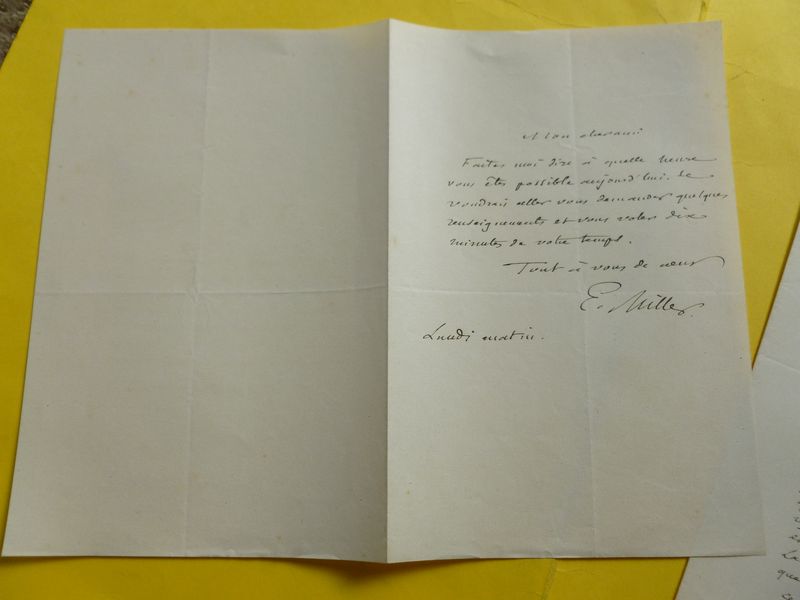 Mon cher ami
Faites moi dire à quelle heure
vous êtes possible aujourd'hui. Je
voudrais aller vous demander quelques
renseignements et vous voler dix
minutes de votre temps.
Tout à vous de cœur
E. Miller.
Lundi matin.
que